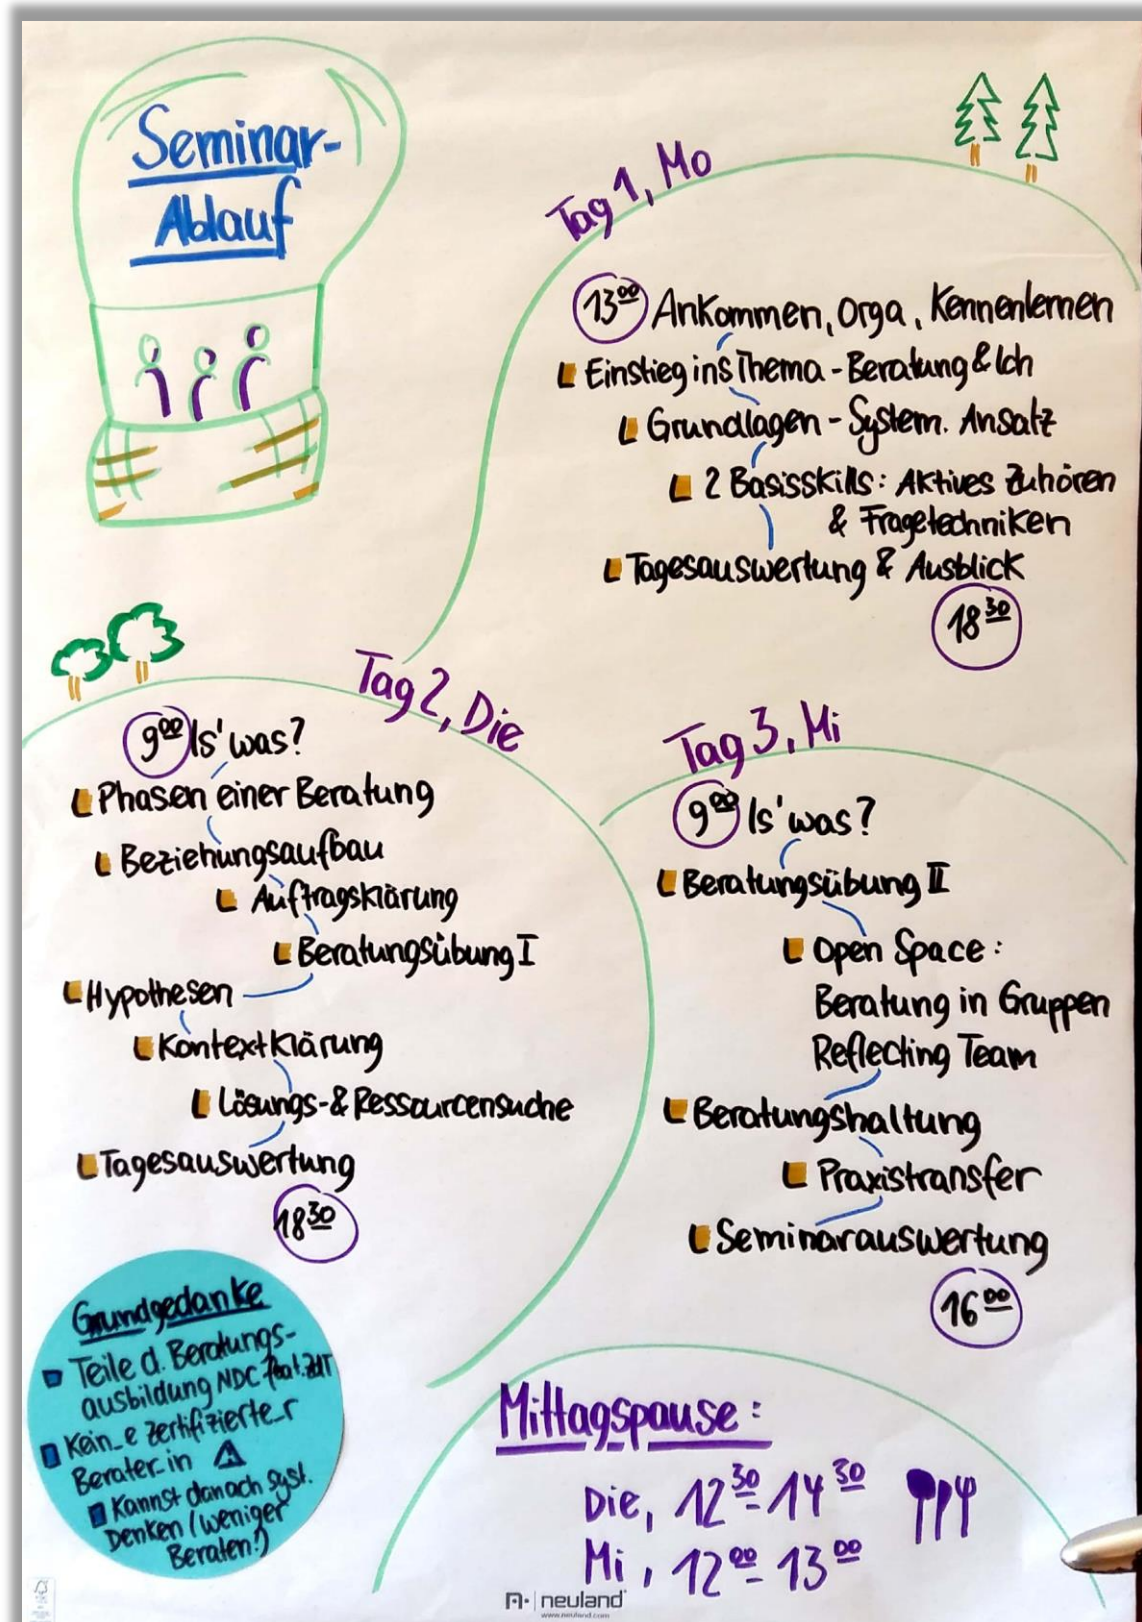 Seminar-
Ablauf
Tag 1, Mo
13⁰⁰ Ankommen, Orga, Kennenlernen
Einstieg ins Thema - Beratung & Ich
Grundlagen - System. Ansatz
2 Basisskills: Aktives Zuhören
& Fragetechniken
Tagesauswertung & Ausblick
18³⁰
Tag 2, Die
9⁰⁰ Is' was?
Phasen einer Beratung
Beziehungsaufbau
Auftragsklärung
Beratungsübung I
Hypothesen
Kontextklärung
Lösungs- & Ressourcensuche
Tagesauswertung
18³⁰
Tag 3, Mi
9⁰⁰ Is' was?
Beratungsübung II
Open Space:
Beratung in Gruppen
Reflecting Team
Beratungshaltung
Praxistransfer
Seminarauswertung
16⁰⁰
Grundgedanke
Teile d. Beratungs-
ausbildung NDC feat. ZdT
Kein_e zertifizierte_r
Berater_in
Kannst danach syst.
Denken (weniger
Beraten!)
Mittagspause:
Die, 12³⁰-14³⁰
Mi, 12⁰⁰-13⁰⁰
neuland
www.neuland.com